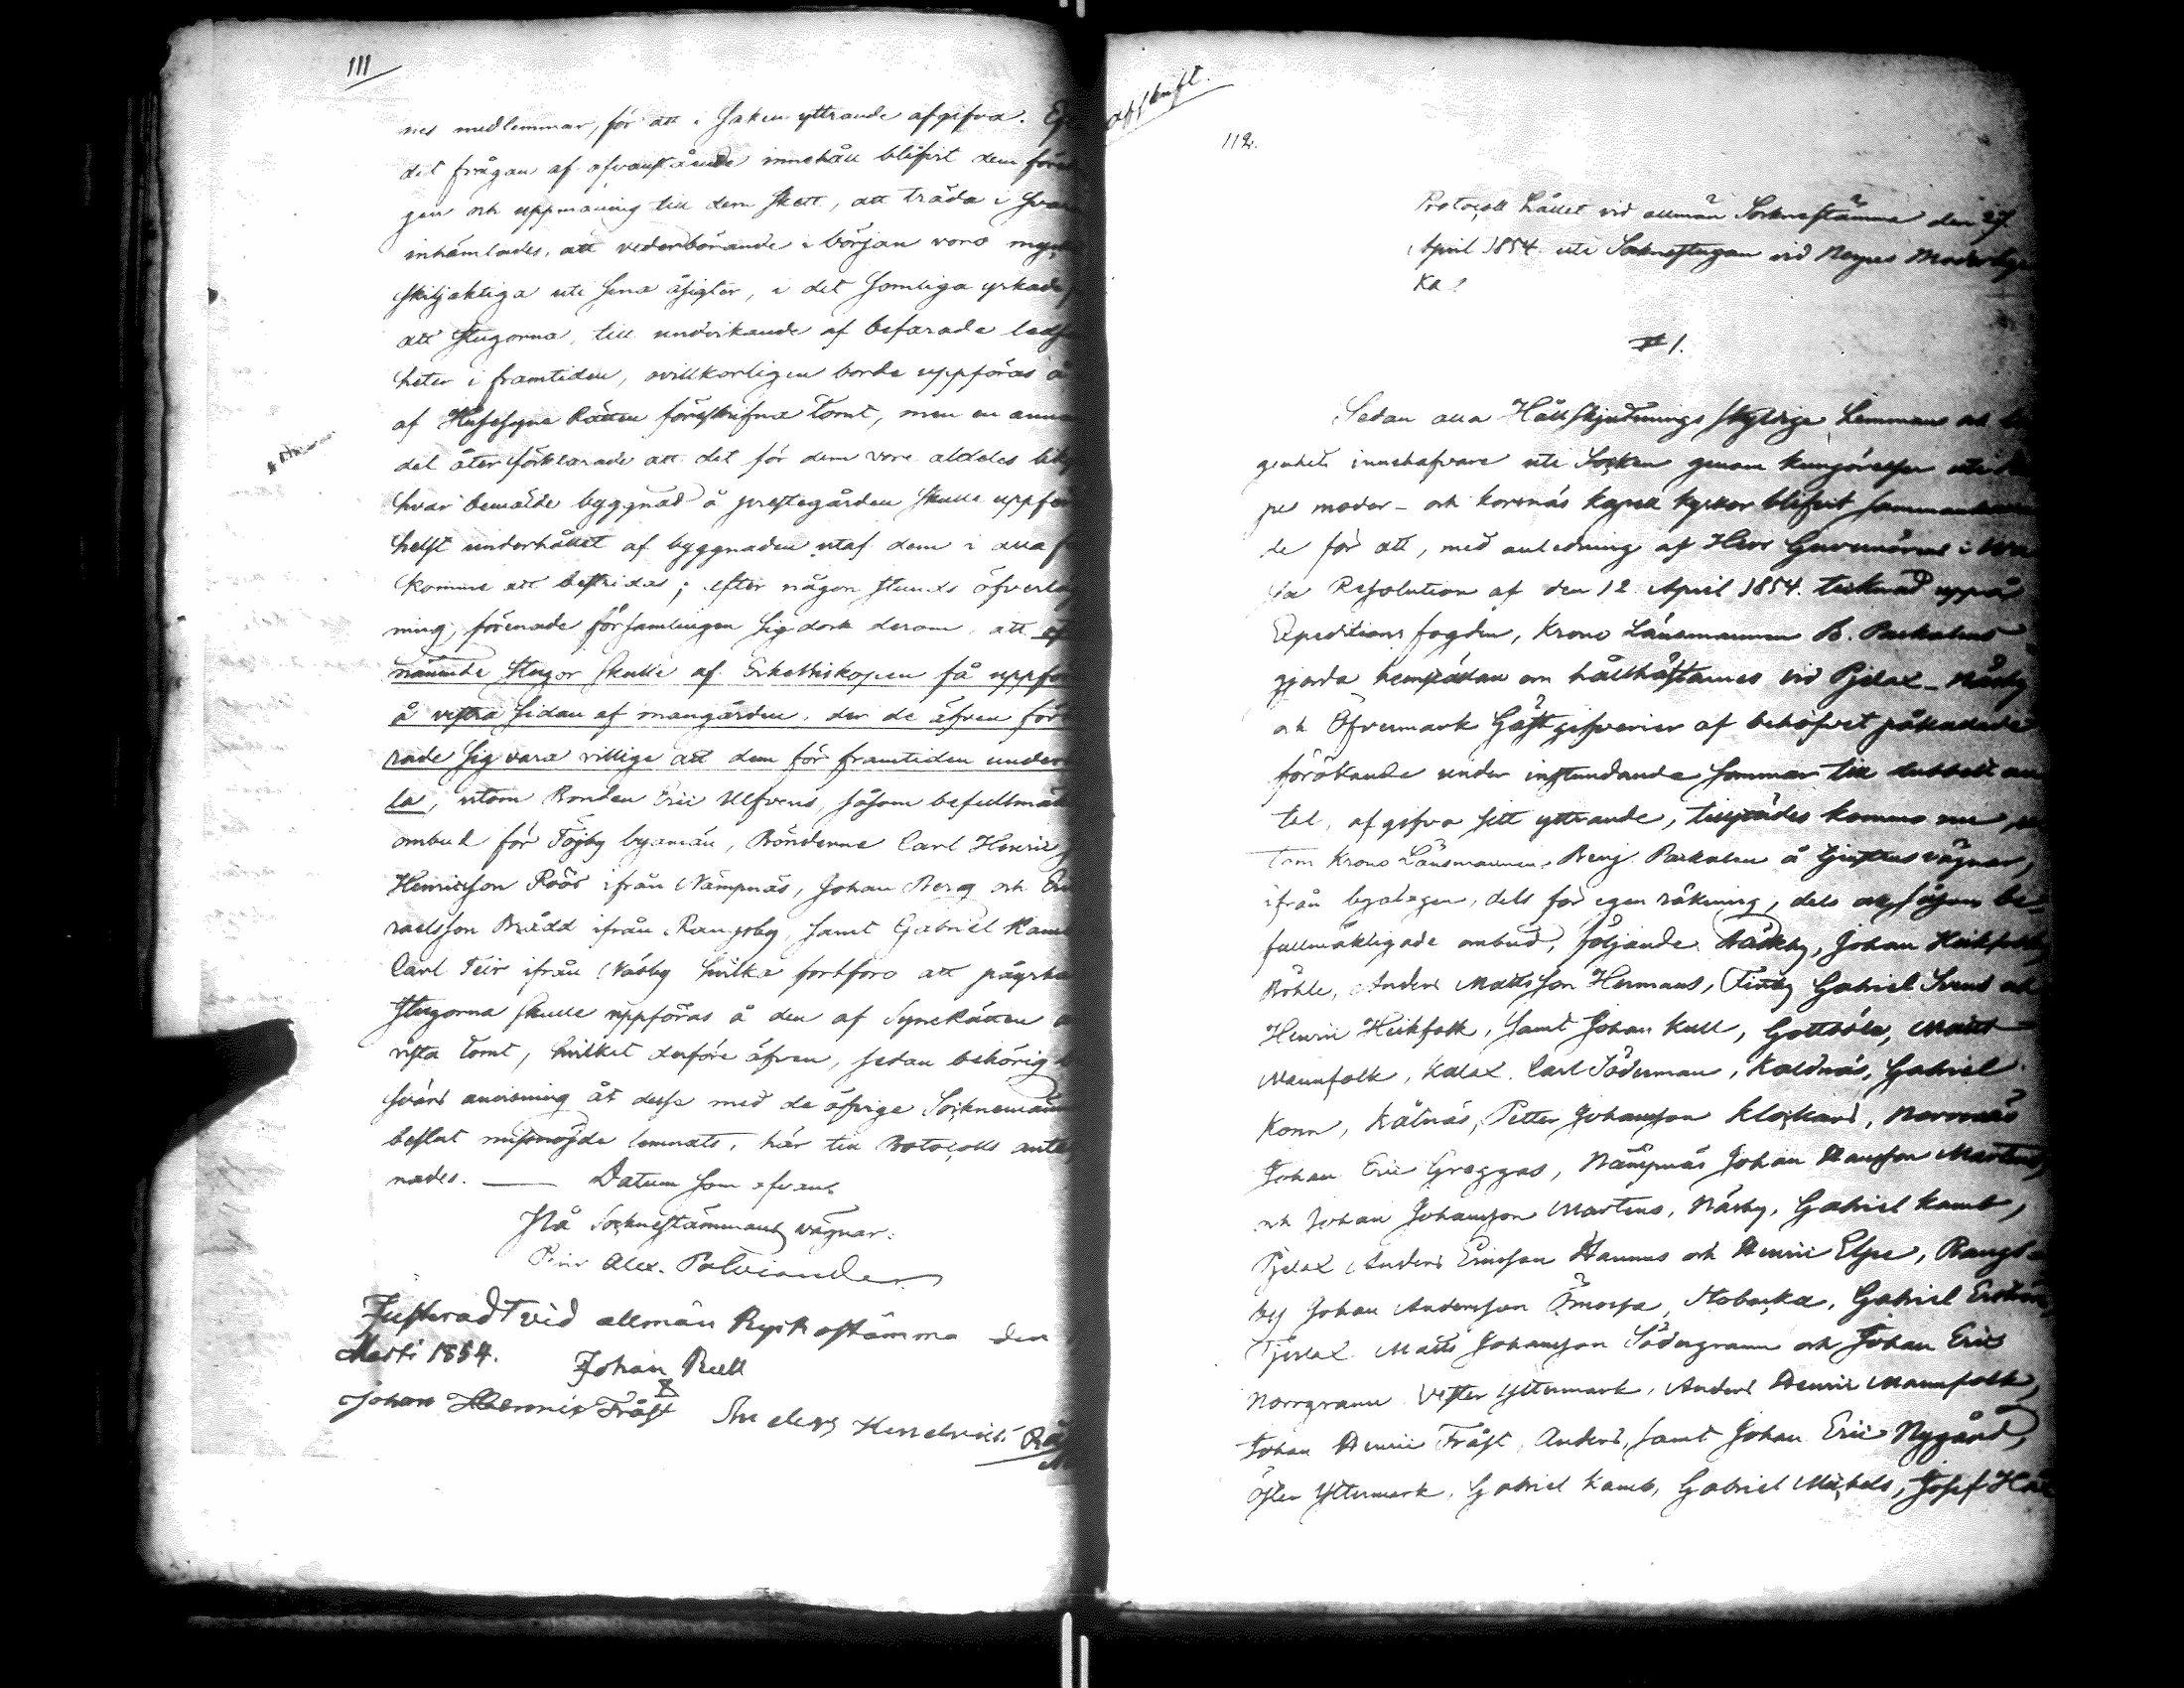 111
nes medlemmar, för att i saken yttrande afgifva.
det frågan af ofvanstående innehåll blifvit dem före
gen och uppmaning till dem skett, att träda i
inhämtades, att vederbörande i början voro
skiljaktiga uti sina åsigter, i det somliga yrkade
att stugorna, till undvikande af befarade
heter i framtiden, ovillkorligen borde uppföras å
af Husesyns Rätten föreskrifna tomt, men en annan
del åter förklarade att det för dem vore aldeles
hvar bemälde byggnad å prestegården skulle
helst underhållet af byggnaden utaf dem i alla
komme att bestridas; efter någon stunds öfverlägg
ning, förenade församlingen sig dock derom, att
nämnde stugor skulle af Erkebiskopen få uppföra
å vestra sidan af mangården, der de äfven för
rade sig vara villige att dem för framtiden under
la, utom Bonden Eric Ulfvens, såsom befullmäk
ombud för Töjby byamän, Bönderne Carl Henric
Henricsson Röös ifrån Nämpnäs, Johan Berg och
raelsson Brädd ifrån Rangsby, samt Gabriel Kamb
Carl Teir ifrån Näsby hvilka fortforo att påyrka
stugorna skulle uppföras å den af Syne Rätten
vista tomt, hvilket derföre äfven, sedan behörig
svärs anvisning åt desse med de öfrige Socknemän
beslut missnöjde lemnats, här till Protocolls anteck
nades. — Datum som ofvan
På Sockenstämmans vägnar:
Alex. Polviander
Justeradt vid allmän Kyrkostämma den
Martii 1854. Johan Kull
Johan Henric Fråst Anders Hendrick
afskrift.
112.
Protocoll hållet vid allmän Sockenstämma den 27
April 1854 uti Sockenstugan vid Nerpes Moderkyr
ka
§ 1.
Sedan alla Hållskjutsnings skyldige Hemmans och
genhets innehafvare uti Socken genom kungörelse uti
pes moder- och korsnäs kapell kyrkor blifvit sammankalla
de för att, med anledning af Herr Guvernörens i
sa Resolution af den 12 April 1854. tecknad uppå
Expeditions fogden, Krono Länsmannen B. Backmans
gjorda hemställan om hållhästarnes vid Pjelax - Näsby
och Öfvermark Gästgifverier af behofvet påkallade
förökande under instundande sommar till dubbelt an
tal, afgifva sitt yttrande, tillstädes kommo nu
Krono Länsmannen Benj. å tjenstens vägnar,
ifrån byalagen, dels för egen räkning, dels och såsom be-
fullmäktigade ombud, följande: Träskby, Johan
Böhle, Anders Mattsson Hermans, Finby Gabriel Svens och
Henric Heikfolk, samt Johan Kull, Gottböle, Matts
Mannfolk, Kalax. Carl Söderman, Kaldnäs, Gabriel
Konn, Kåtnäs, Petter Johansson Klockars, Norrnäs
Johan Eric Greggas, Nämpnäs Johan Hansson Martens,
och Johan Johansson Martens, Näsby, Gabriel Kamb,
Pjelax Anders Ericsson Hannus och Henric Elpe, Rangs-
by Johan Andersson Ömossa, Stobacka, Gabriel
Tjerlax. Matts Johansson Södergrann och Johan Erics
Norrgrann Vester Yttermark, Anders Henric Mannfolk,
Johan Henric Fråst, Anders, samt Johan Eric Nygård,
Öster Yttermark, Gabriel Kamb, Gabriel Michels, Josef